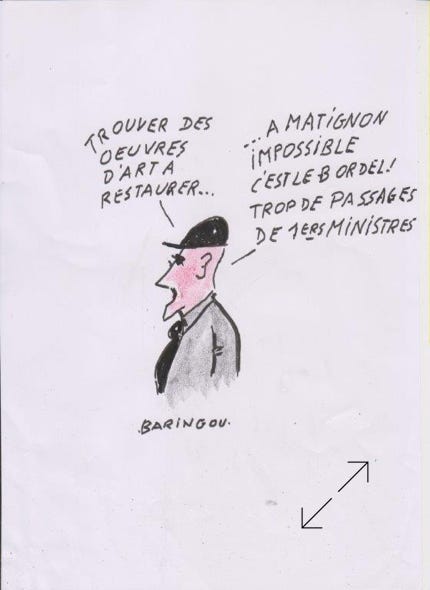 TROUVER DES
OEUVRES
D'ART A
RESTAURER...
...A MATIGNON
IMPOSSIBLE
C'EST LE BORDEL!
TROP DE PASSAGES
DE 1ERS MINISTRES
BARINGOU.